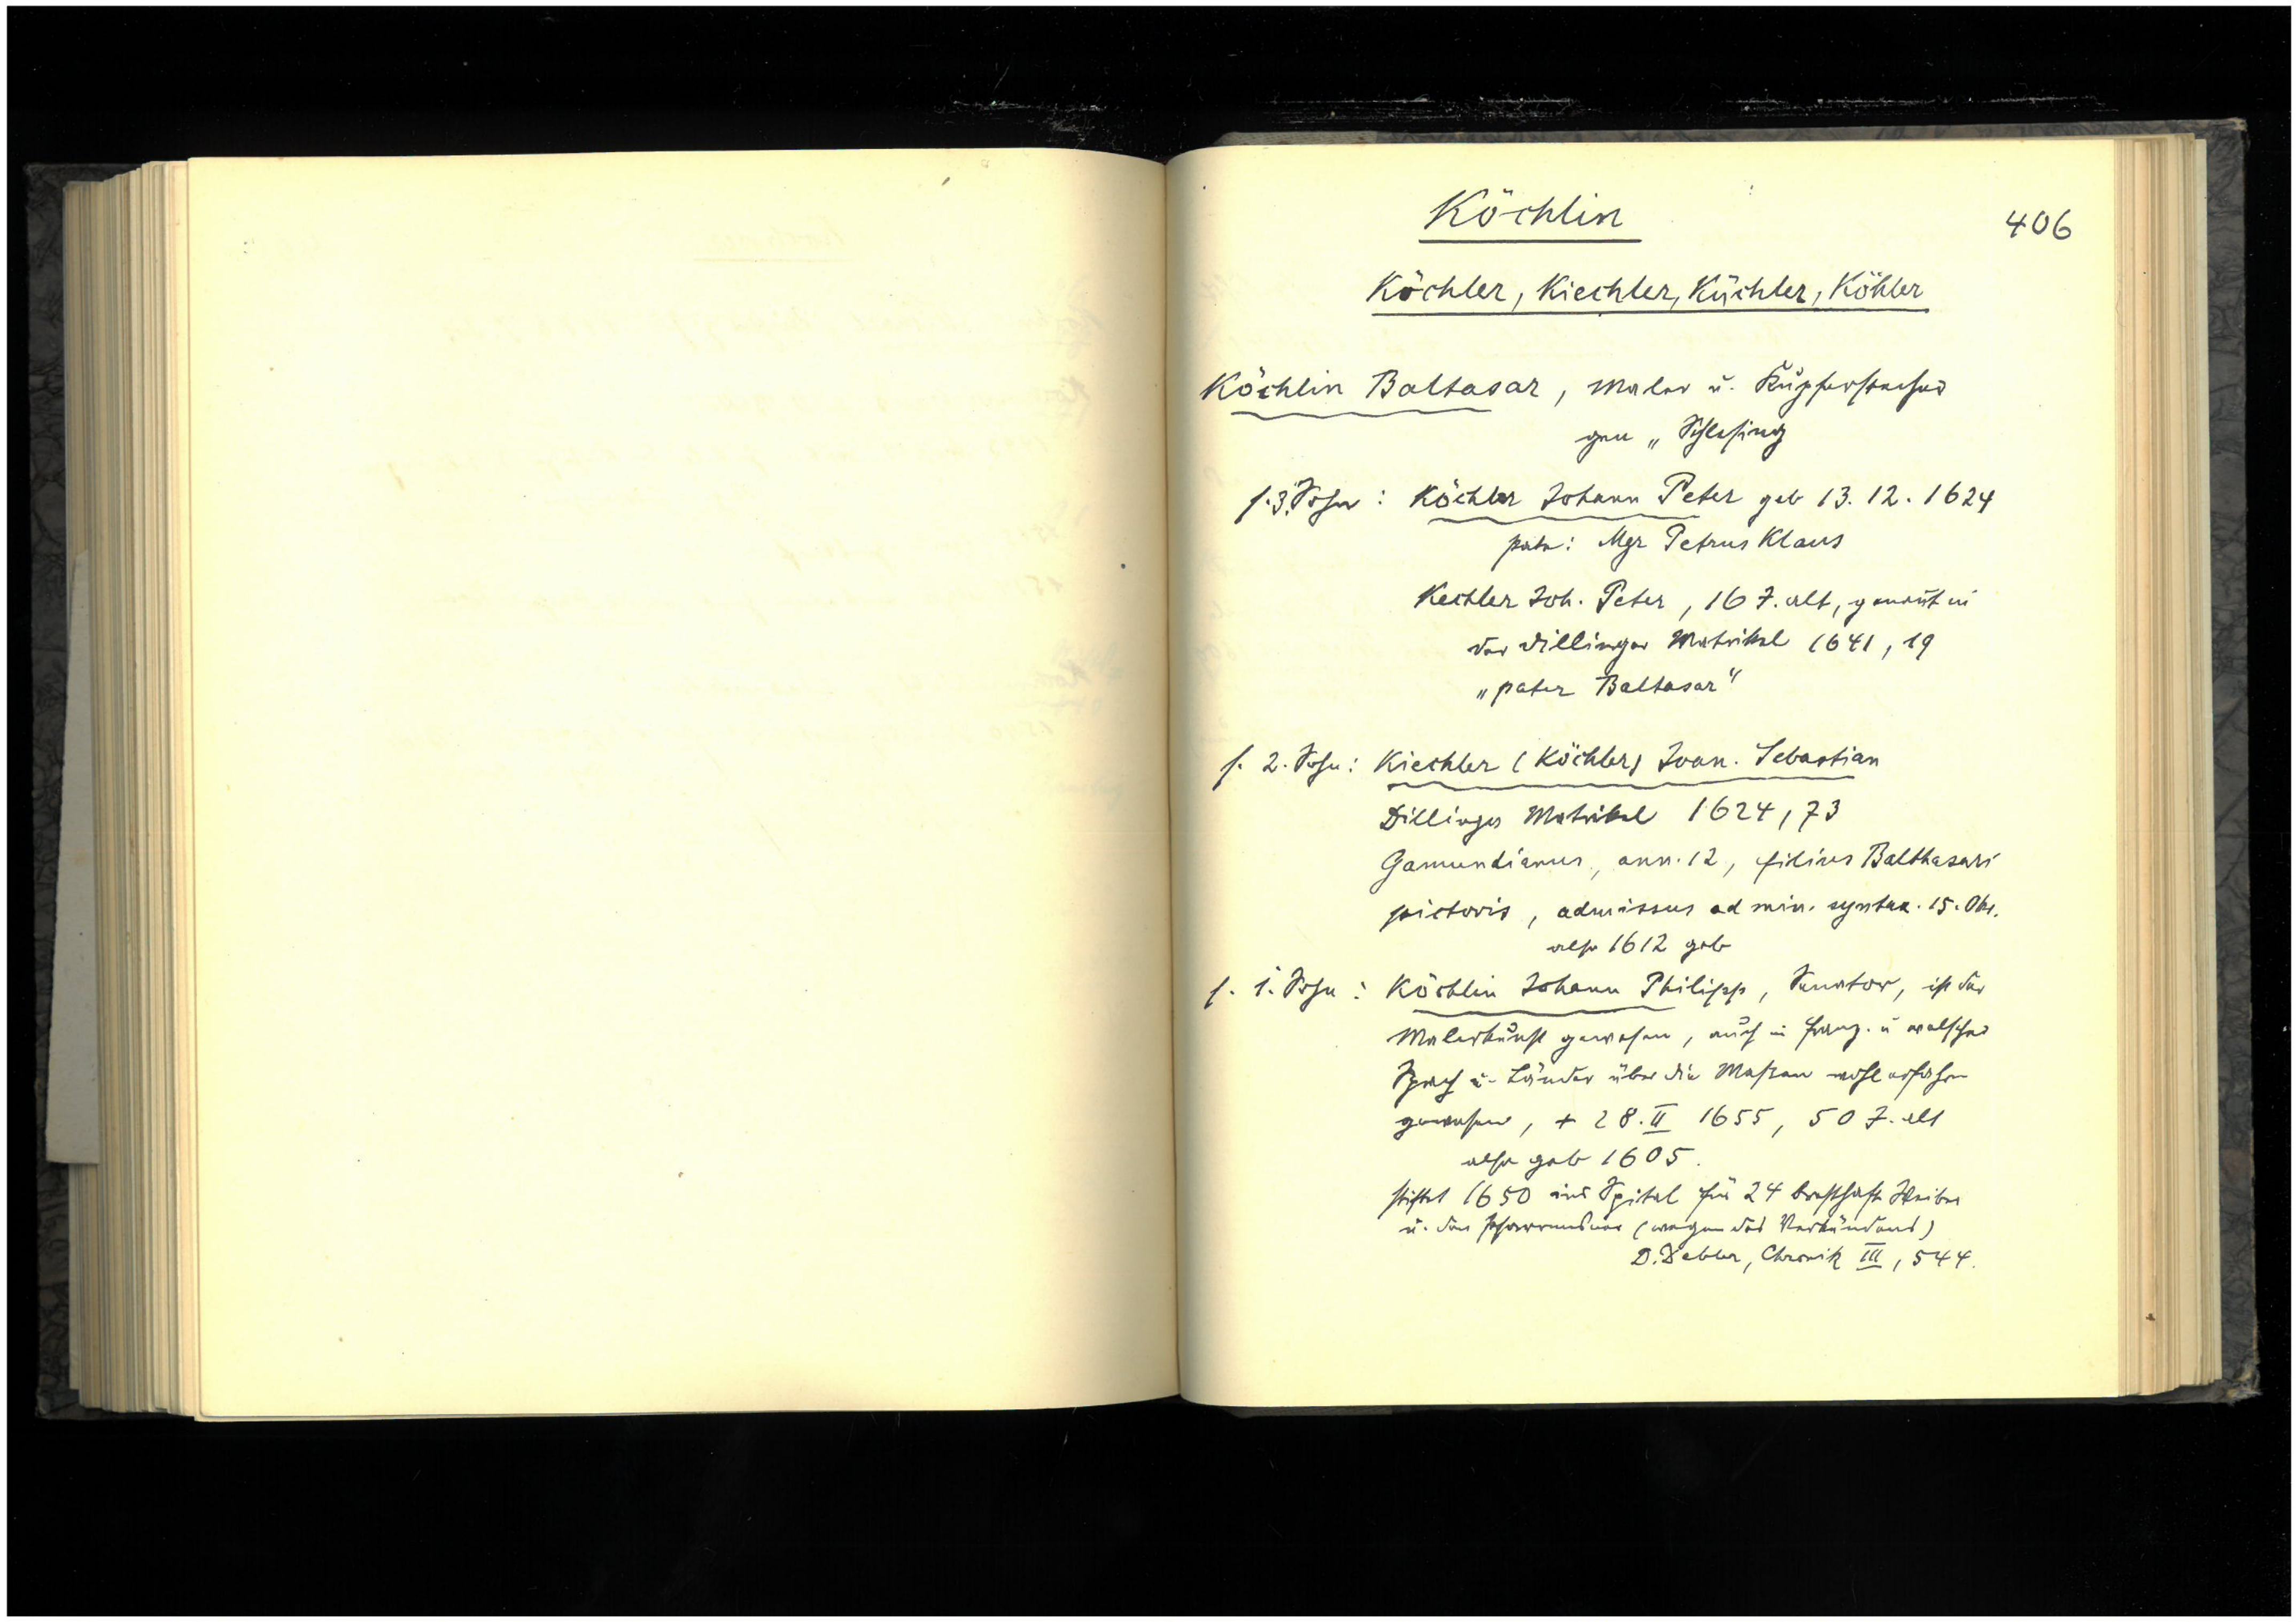 Köchlin
406
Köchler, Kiechler, Küchler, Köhler
Köchlin Baltasar, Maler u. Kupferstecher
gen „ Schlesing
s. 3. Sohn : Köchler Johann Peter geb 13. 12. 1624
patr: Mgr Petrus Klaus
Kechler Joh. Peter, 16 J. alt, genannt in
der Dillinger Matrikel 1641, 19
„pater Baltasar“
s. 2. Sohn: Kiechler (Köchler) Joan. Sebastian
Dillinger Matrikel 1624, 73
Gamundianus, ann. 12, filius Balthasari
pictoris, admissus ad min. syntax. 15. Okt.
also 1612 geb
s. 1. Sohn : Köchlin Johann Philipp, Senator, ist der
Malerkunst gewesen, auch in franz. u welscher
Sprach u. Länder über die Massen wohl erfahren
gewesen, + 28. II 1655, 50 J. alt
also geb 1605.
stiftet 1650 ins Spital für 24 bresthafte Weiber
u. den (wegen des Verkündens)
D. Debler, Chronik III, 544.